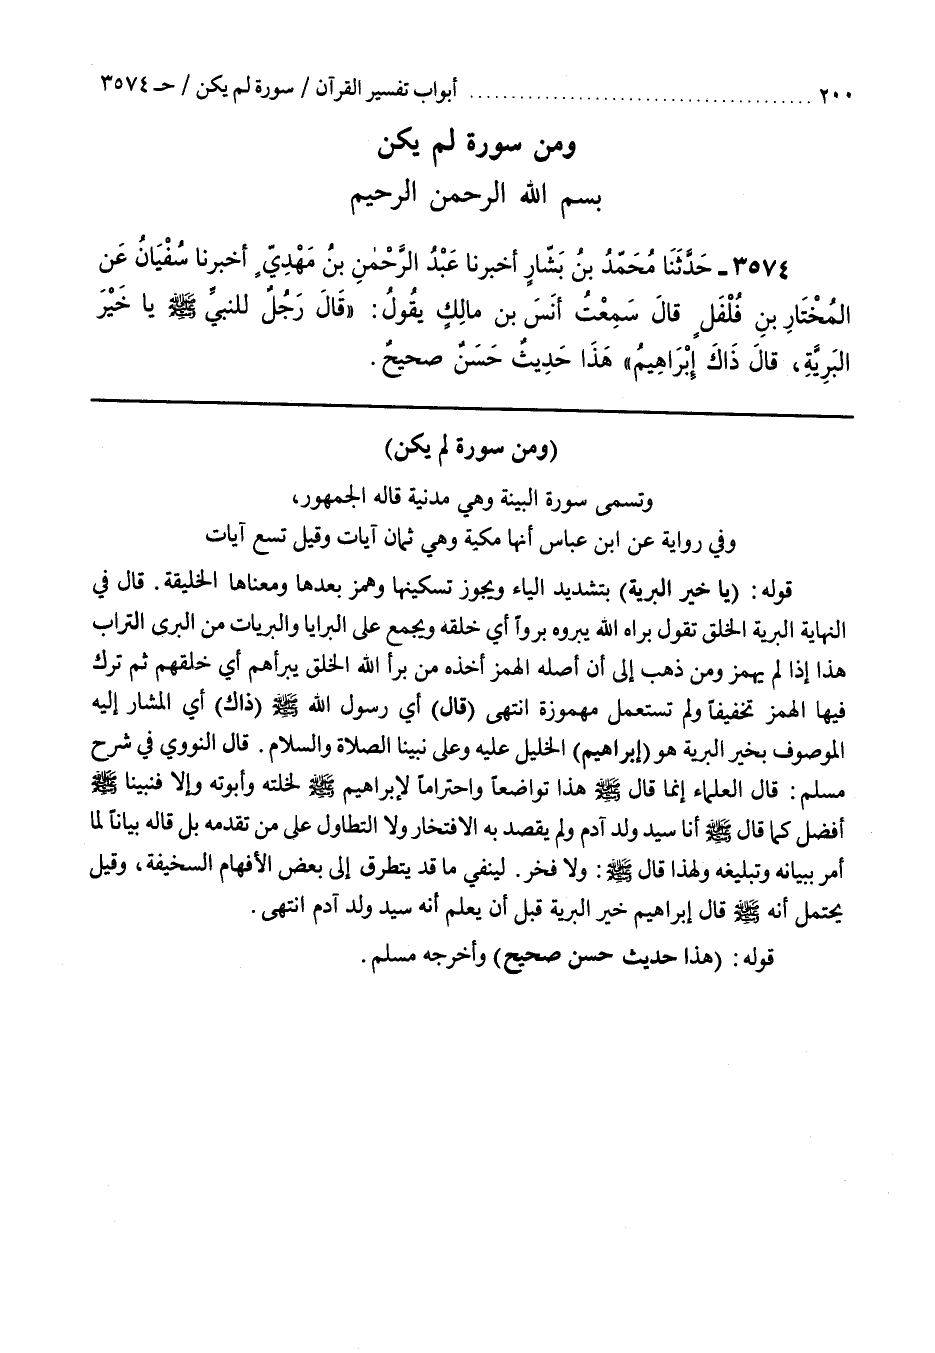 ٢٠٠ ........................................ أبواب تفسير القرآن / سورة لم يكن / حـ ٣٥٧٤
ومن سورة لم يكن
بسم الله الرحمن الرحيم
٣٥٧٤ـ حَدَّثَنَا مُحَمَّدُ بنُ بَشَّارٍ أخبرنا عَبْدُ الرَّحْمٰنِ بنُ مَهْدِيٍّ أخبرنا سُفْيَانُ عَن
المُخْتَارِ بنِ فُلْفَلٍ قالَ سَمِعْتُ أنَسَ بن مالِكٍ يقُولُ: «قَالَ رَجُلٌ للنبيِّ ﷺ يا خَيْرَ
البَرِيَّةِ، قالَ ذَاكَ إبْرَاهِيمُ» هَذَا حَدِيثٌ حَسَنٌ صحيحٌ.
(ومن سورة لم يكن)
وتسمى سورة البينة وهي مدنية قاله الجمهور،
وفي رواية عن ابن عباس أنها مكية وهي ثمان آيات وقيل تسع آيات
قوله: (يا خير البرية) بتشديد الياء ويجوز تسكينها وهمز بعدها ومعناها الخليقة. قال في
النهاية البرية الخلق تقول براه الله يبروه برواً أي خلقه ويجمع على البرايا والبريات من البرى التراب
هذا إذا لم يهمز ومن ذهب إلى أن أصله الهمز أخذه من برأ الله الخلق يبرأهم أي خلقهم ثم ترك
فيها الهمز تخفيفاً ولم تستعمل مهموزة انتهى (قال) أي رسول الله ﷺ (ذاك) أي المشار إليه
الموصوف بخير البرية هو (إبراهيم) الخليل عليه وعلى نبينا الصلاة والسلام. قال النووي في شرح
مسلم: قال العلماء إنما قال ﷺ هذا تواضعاً واحتراماً لإبراهيم ﷺ لخلته وأبوته وإلا فنبينا ﷺ
أفضل كما قال ﷺ أنا سيد ولد آدم ولم يقصد به الافتخار ولا التطاول على من تقدمه بل قاله بياناً لما
أمر ببيانه وتبليغه ولهذا قال ﷺ: ولا فخر. لينفي ما قد يتطرق إلى بعض الأفهام السخيفة، وقيل
يحتمل أنه ﷺ قال إبراهيم خير البرية قبل أن يعلم أنه سيد ولد آدم انتهى.
قوله: (هذا حديث حسن صحيح) وأخرجه مسلم.